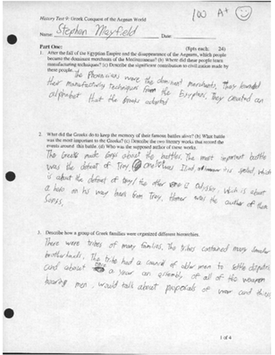 History Test 9: Greek Conquest of the Aegean World
100 A+
Name Stephen Mayfield Date
Part One: (8pts each, 24)
1. After the fall of the Egyptian Empire and the disappearance of the Aegeans, which people
became the dominant merchants of the Mediterranean? (b) Where did these people learn
manufacturing techniques? (c) Describe the significant contribution to civilization made by
these people.
The Phonecians were the dominant merchants, They learned
their manufacturing techniques from the Egyptians, They created an
alphabet that the Greeks adopted
2. What did the Greeks do to keep the memory of their famous battles alive? (b) What battle
was the most important to the Greeks? (c) Describe the two literary works that record the
events around this battle. (d) Who was the supposed author of these works.
The Greeks made songs about the battles. The most important battle
was the defeat of Troy, One was the Iliad, which
is about the defeat of troy/the other is Odyssey, which is about
a hero on his way home from Troy, Homer was the author of these
3. Describe how a group of Greek families were organized different hierarchies.
There were tribes of many families. The tribes contained many smaller
brotherhoods. The tribe had a council of older men to settle disputes
and about a year an assembly, of all of the weapon
bearing men, would talk about proposals of war and things
1 of 4